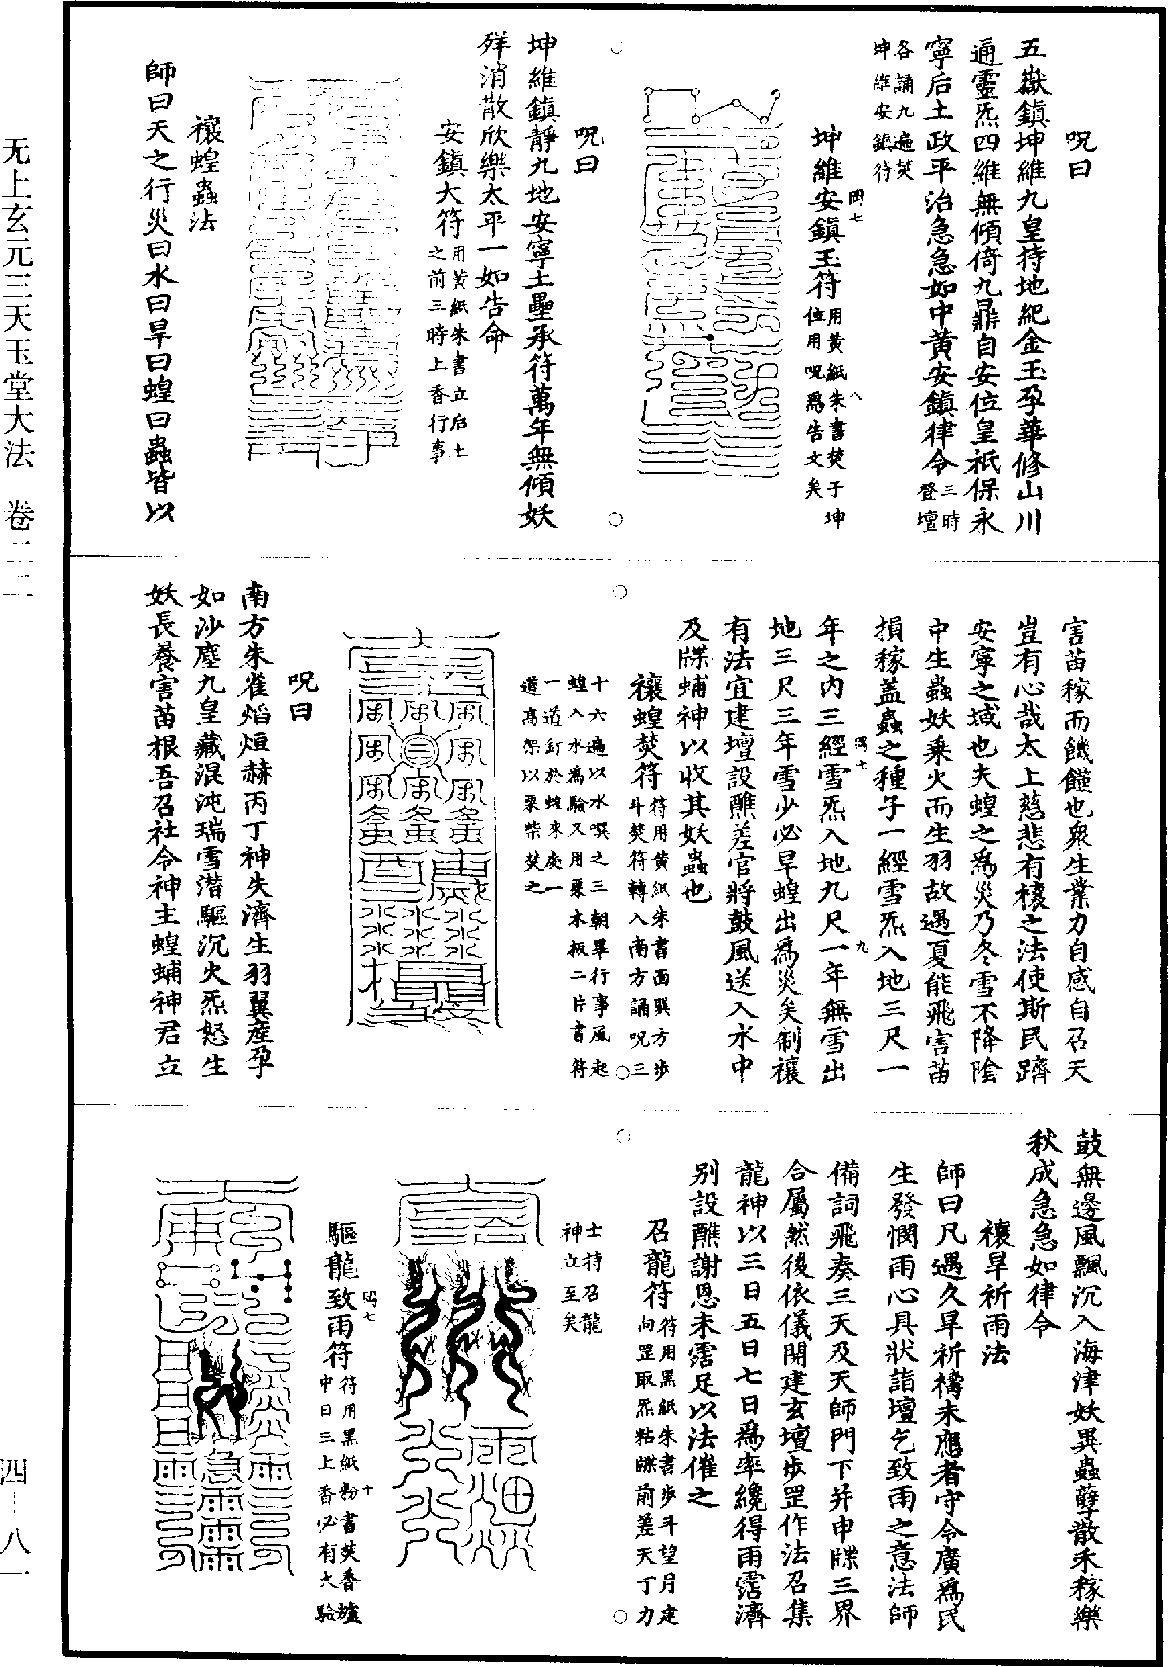 呪曰
五嶽鎮坤維九皇持地紀金玉孕華修山川
通靈炁四維無傾倚九鼎自安位皇祇保永
寧后土政平治急急如中黃安鎮律令三時
登壇
各誦九遍焚
坤維安鎮符
坤維安鎮玉符用黃紙朱書焚于坤
位用呪爲告文矣
呪曰
坤維鎮靜九地安寧土壘承符萬年無傾妖
殃消散欣樂太平一如告命
安鎮大符用黃紙朱書立后土
之前三時上香行事
禳蝗蟲法
師曰天之行災曰水曰旱曰蝗曰蟲皆以
害苗稼而饑饉也衆生業力自感自召天
豈有心哉太上慈悲有禳之法使斯民躋
安寧之域也夫蝗之爲災乃冬雪不降陰
中生蟲妖乘火而生羽故遇夏能飛害苗
損稼蓋蟲之種子一經雪炁入地三尺一
年之內三經雪炁入地九尺一年無雪出
地三尺三年雪少必旱蝗出爲災矣制禳
有法宜建壇設醮差官將鼓風送入水中
及牒蜅神以收其妖蟲也
禳蝗焚符符用黃紙朱書面巽方步
斗焚符轉入南方誦呪三
十六遍以水噀之三朝畢行事風起
蝗入水爲驗又用棗木板二片書符
一道釘於蝗來處一
道高架以棗柴焚之
呪曰
南方朱雀焰烜赫丙丁神失濟生羽翼産孕
如沙塵九皇藏混沌瑞雪潛驅沉火炁怒生
妖長養害苗根吾召社令神主蝗蜅神君立
鼓無邊風飄沉入海津妖異蟲孽散禾稼樂
秋成急急如律令
禳旱祈雨法
師曰凡遇久旱祈禱未應者守令廣爲民
生發憫雨心具狀詣壇乞致雨之意法師
備詞飛奏三天及天師門下并申牒三界
合屬然後依儀開建玄壇步罡作法召集
龍神以三日五日七日爲率纔得雨霑濟
別設醮謝恩未霑足以法催之
召龍符符用黑紙朱書步斗望月建
向罡取炁粘牒前差天丁力
士持召龍
神立至矣
驅龍致雨符符用黑紙粉書焚香爐
中日三上香必有大驗
无上玄元三天玉堂大法 卷二二
四—八一